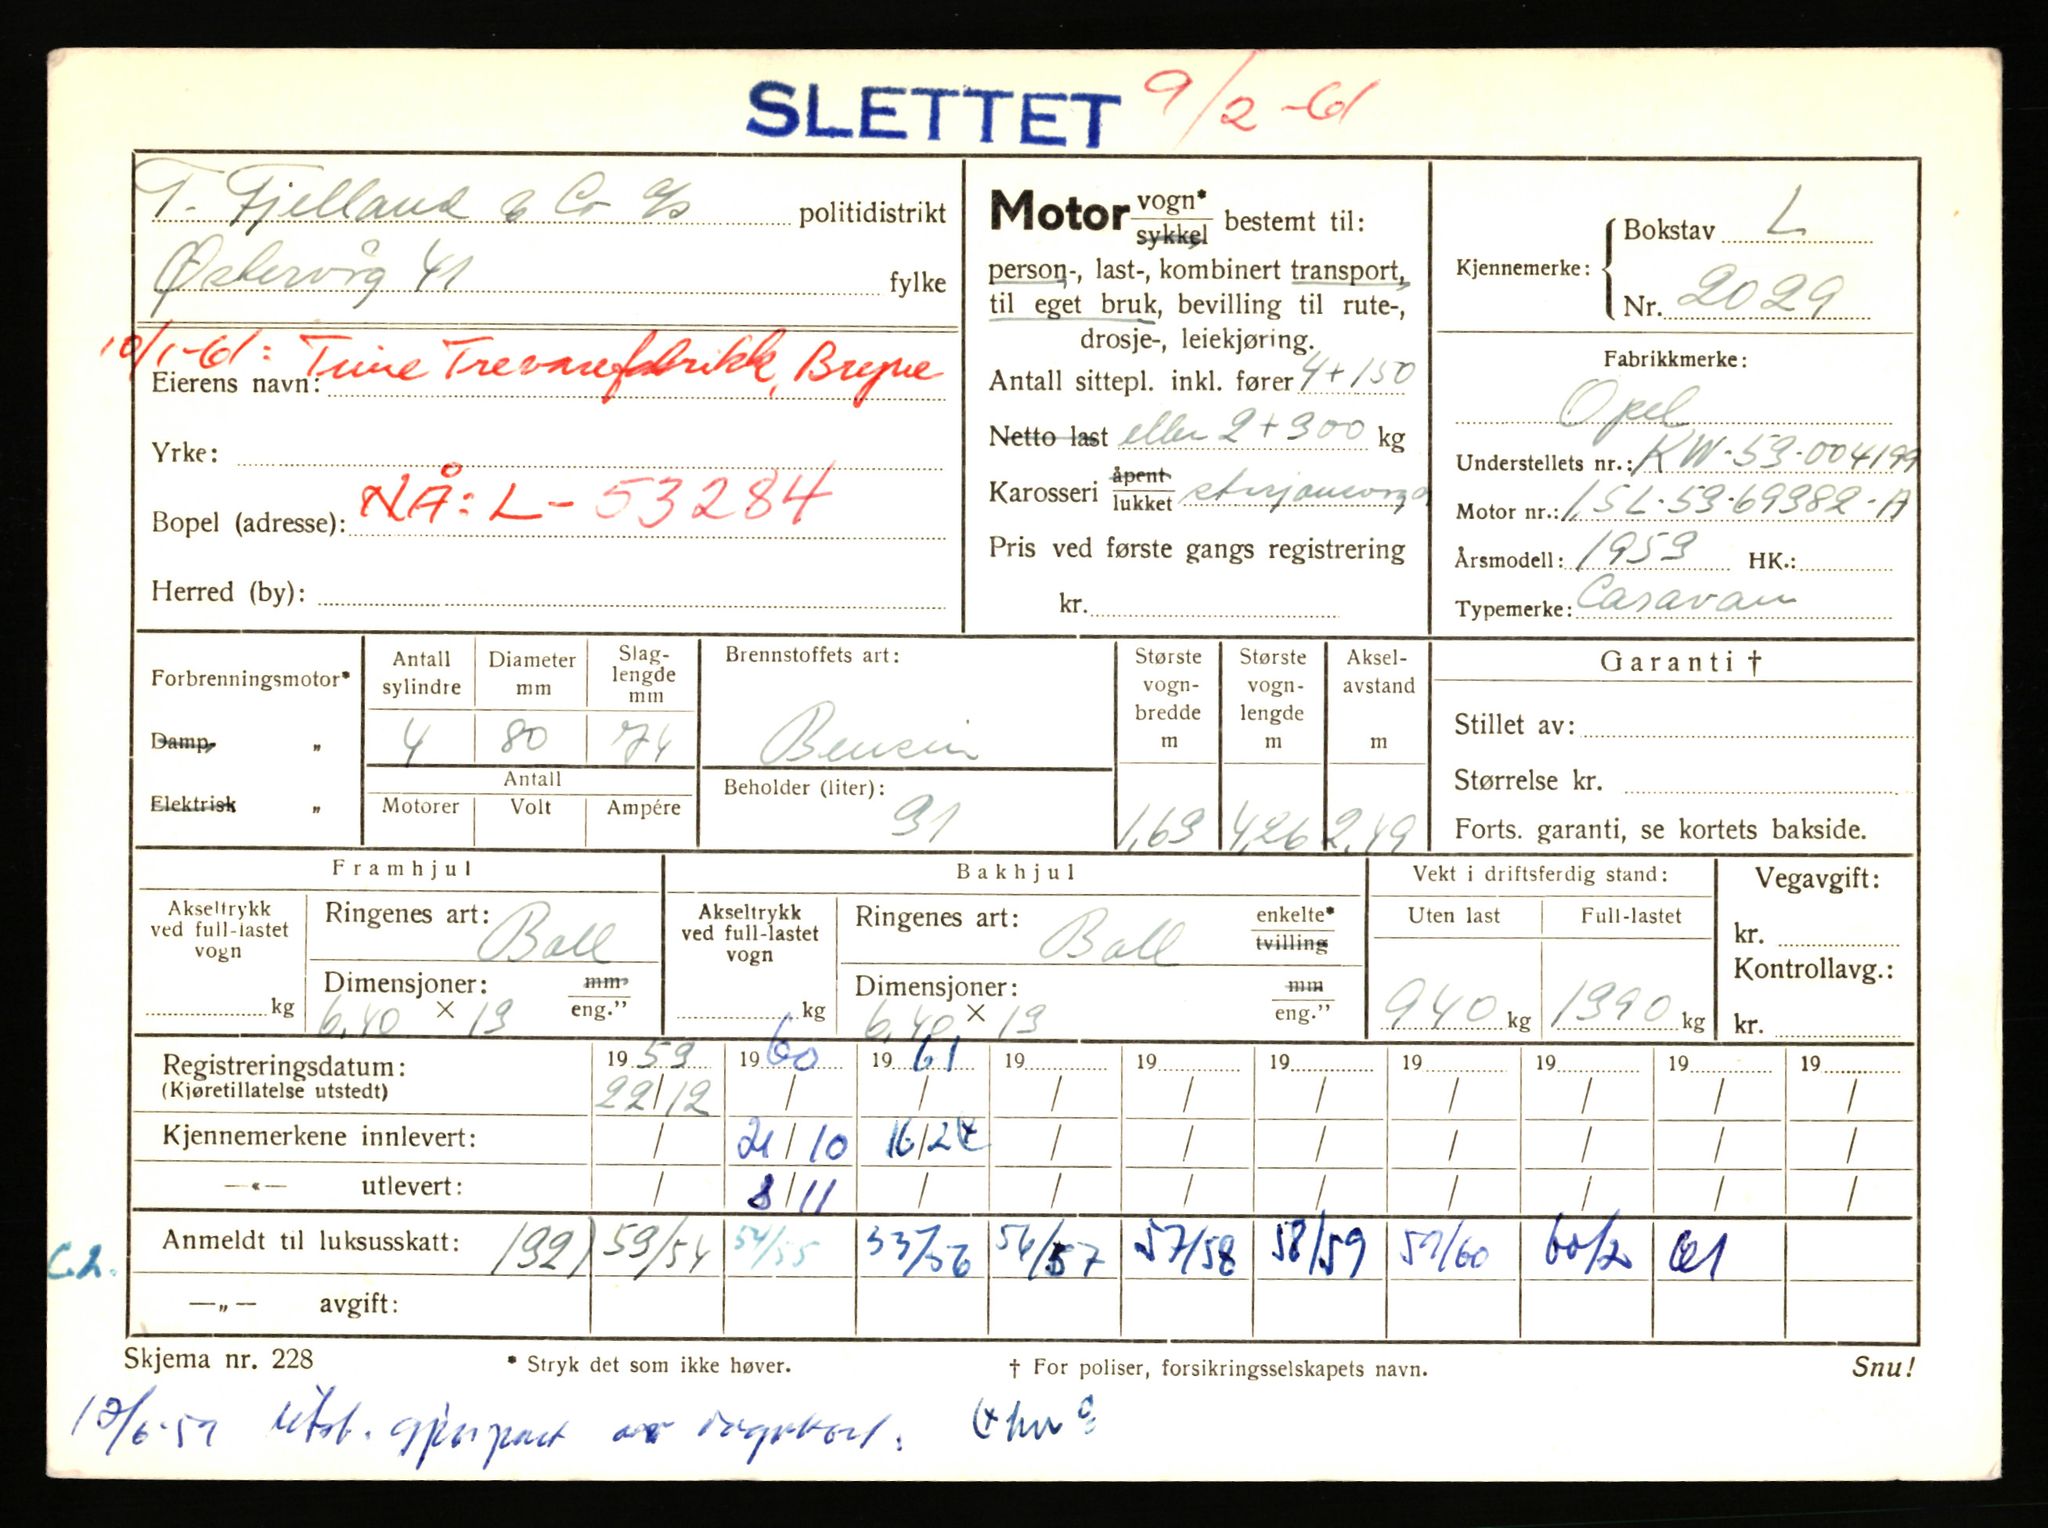 SLETTET 9/2-61
T. Fjelland & Co a/s politidistrikt
Østervåg 41 fylke
10/1-61: Time Trevarefabrikk, Bryne
Eierens navn:
Yrke:
NÅ: L-53284
Bopel (adresse):
Herred (by):
Motor vogn* sykkel bestemt til:
person-, last-, kombinert transport,
til eget bruk, bevilling til rute-,
drosje-, leiekjøring.
Antall sittepl. inkl. fører 4+150
Netto last eller 2+300 kg
Karosseri åpent lukket stasjonsvogn
Pris ved første gangs registrering
kr.
Kjennemerke: Bokstav L
Nr. 2029
Fabrikkmerke:
Opel
Understellets nr.: KW-53-004199
Motor nr.: 1,5L-53-69382-A
Årsmodell: 1953 HK.:
Typemerke: Caravan
Forbrenningsmotor* Antall sylindre Diameter mm Slag-lengde mm
Damp „ 4 80 74
Elektrisk „ Antall
Motorer Volt Ampére
Brennstoffets art:
Bensin
Beholder (liter):
31
Største vogn-bredde m 1,63
Største vogn-lengde m 4,26
Aksel-avstand m 2,49
Garanti †
Stillet av:
Størrelse kr.
Forts. garanti, se kortets bakside.
Framhjul
Akseltrykk ved full-lastet vogn kg
Ringenes art: Ball
Dimensjoner: mm eng."
6,40 × 13
Bakhjul
Akseltrykk ved full-lastet vogn kg
Ringenes art: Ball enkelte* tvilling
Dimensjoner: mm eng."
6,40 × 13
Vekt i driftsferdig stand:
Uten last Full-lastet
940 kg 1390 kg
Vegavgift:
kr.
Kontrollavg.:
kr.
Registreringsdatum: 1953 1960 1961 19 19 19 19 19 19 19
(Kjøretillatelse utstedt) 22/12 / / / / / / / / /
Kjennemerkene innlevert: / 21/10 16/2 / / / / / / /
—«— utlevert: / 8/11 / / / / / / / /
C.2. Anmeldt til luksusskatt: 192) 53/54 54/55 55/56 56/57 57/58 58/59 59/60 60/2 61
—„— avgift:
Skjema nr. 228 * Stryk det som ikke høver. † For poliser, forsikringsselskapets navn. Snu!
13/6-59 Utst. gjenpart av